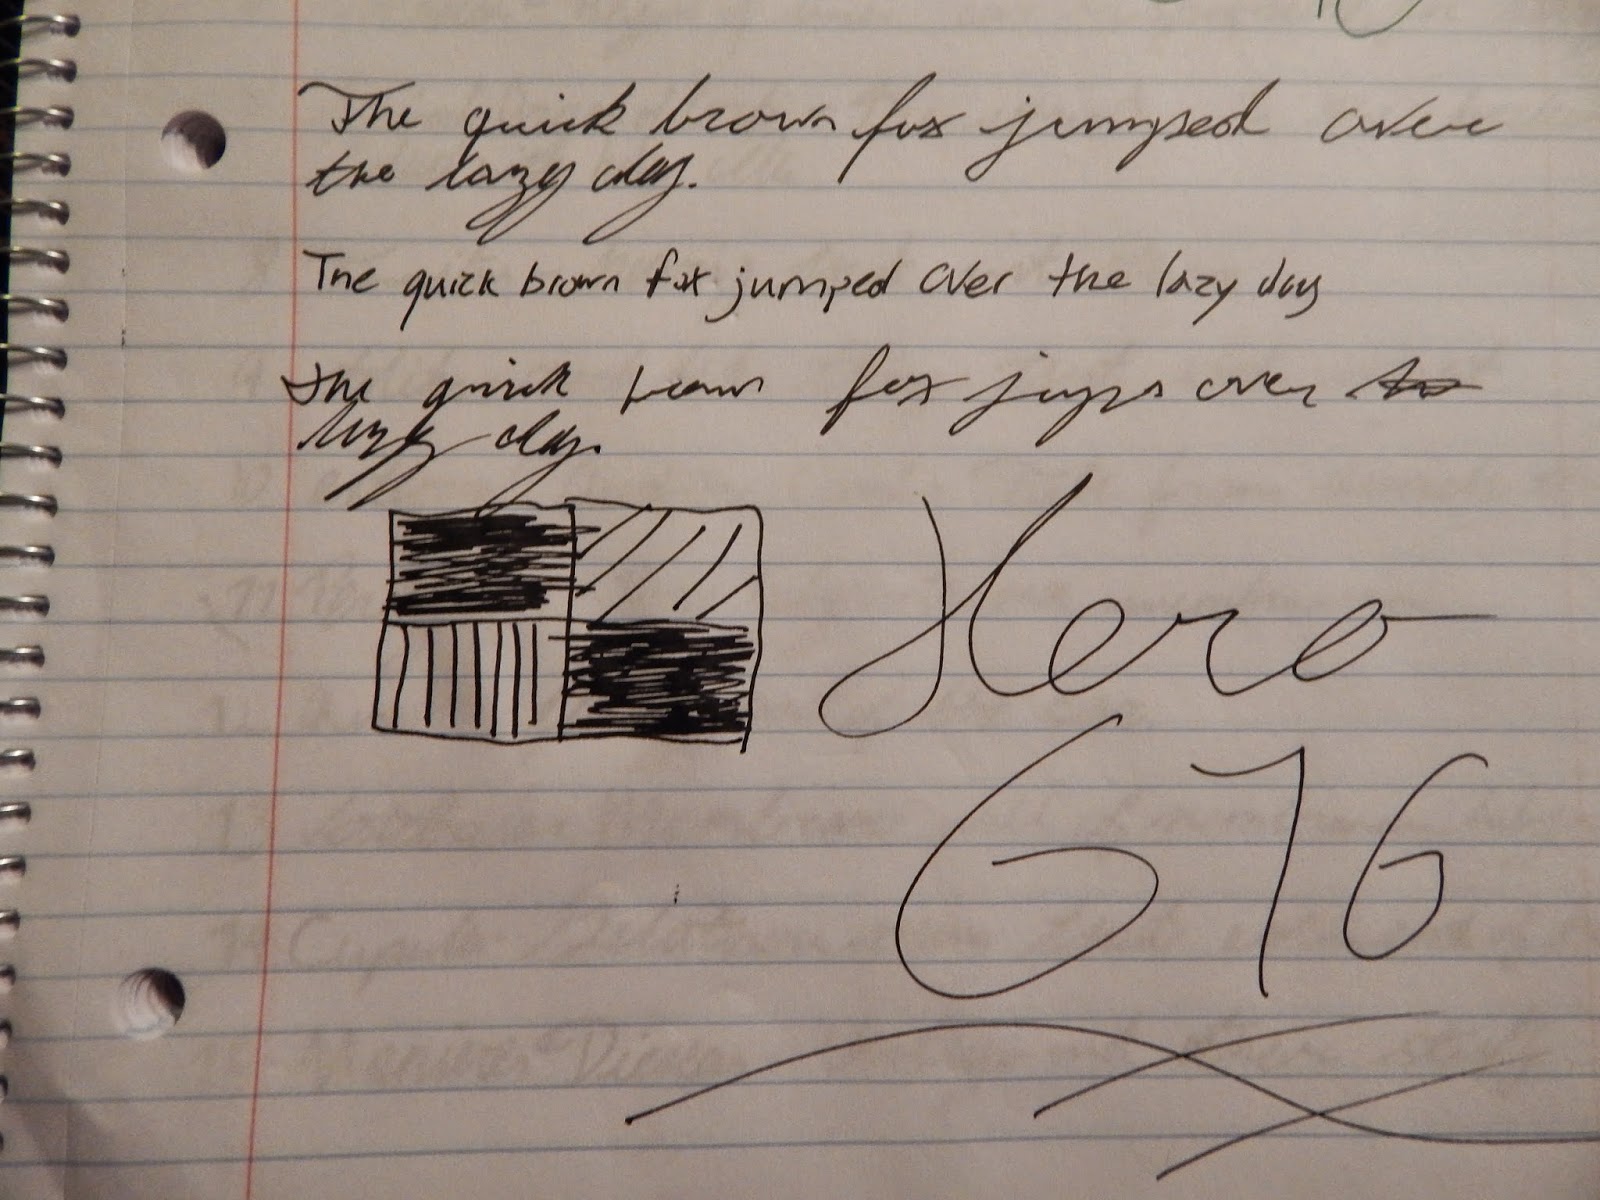 The quick brown fox jumped over
the lazy dog.
The quick brown fox jumped over the lazy dog
the quick brown fox jumps over the
lazy dog.
Hero
616